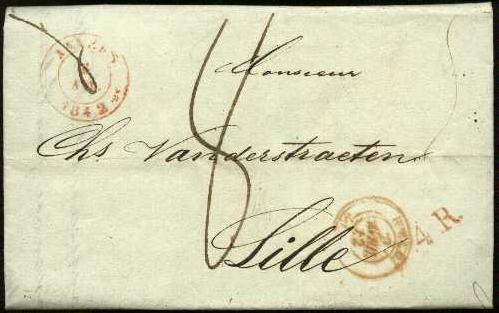 1842
8
Monsieur
Chs Vanderstraeten
Lille
4 R.